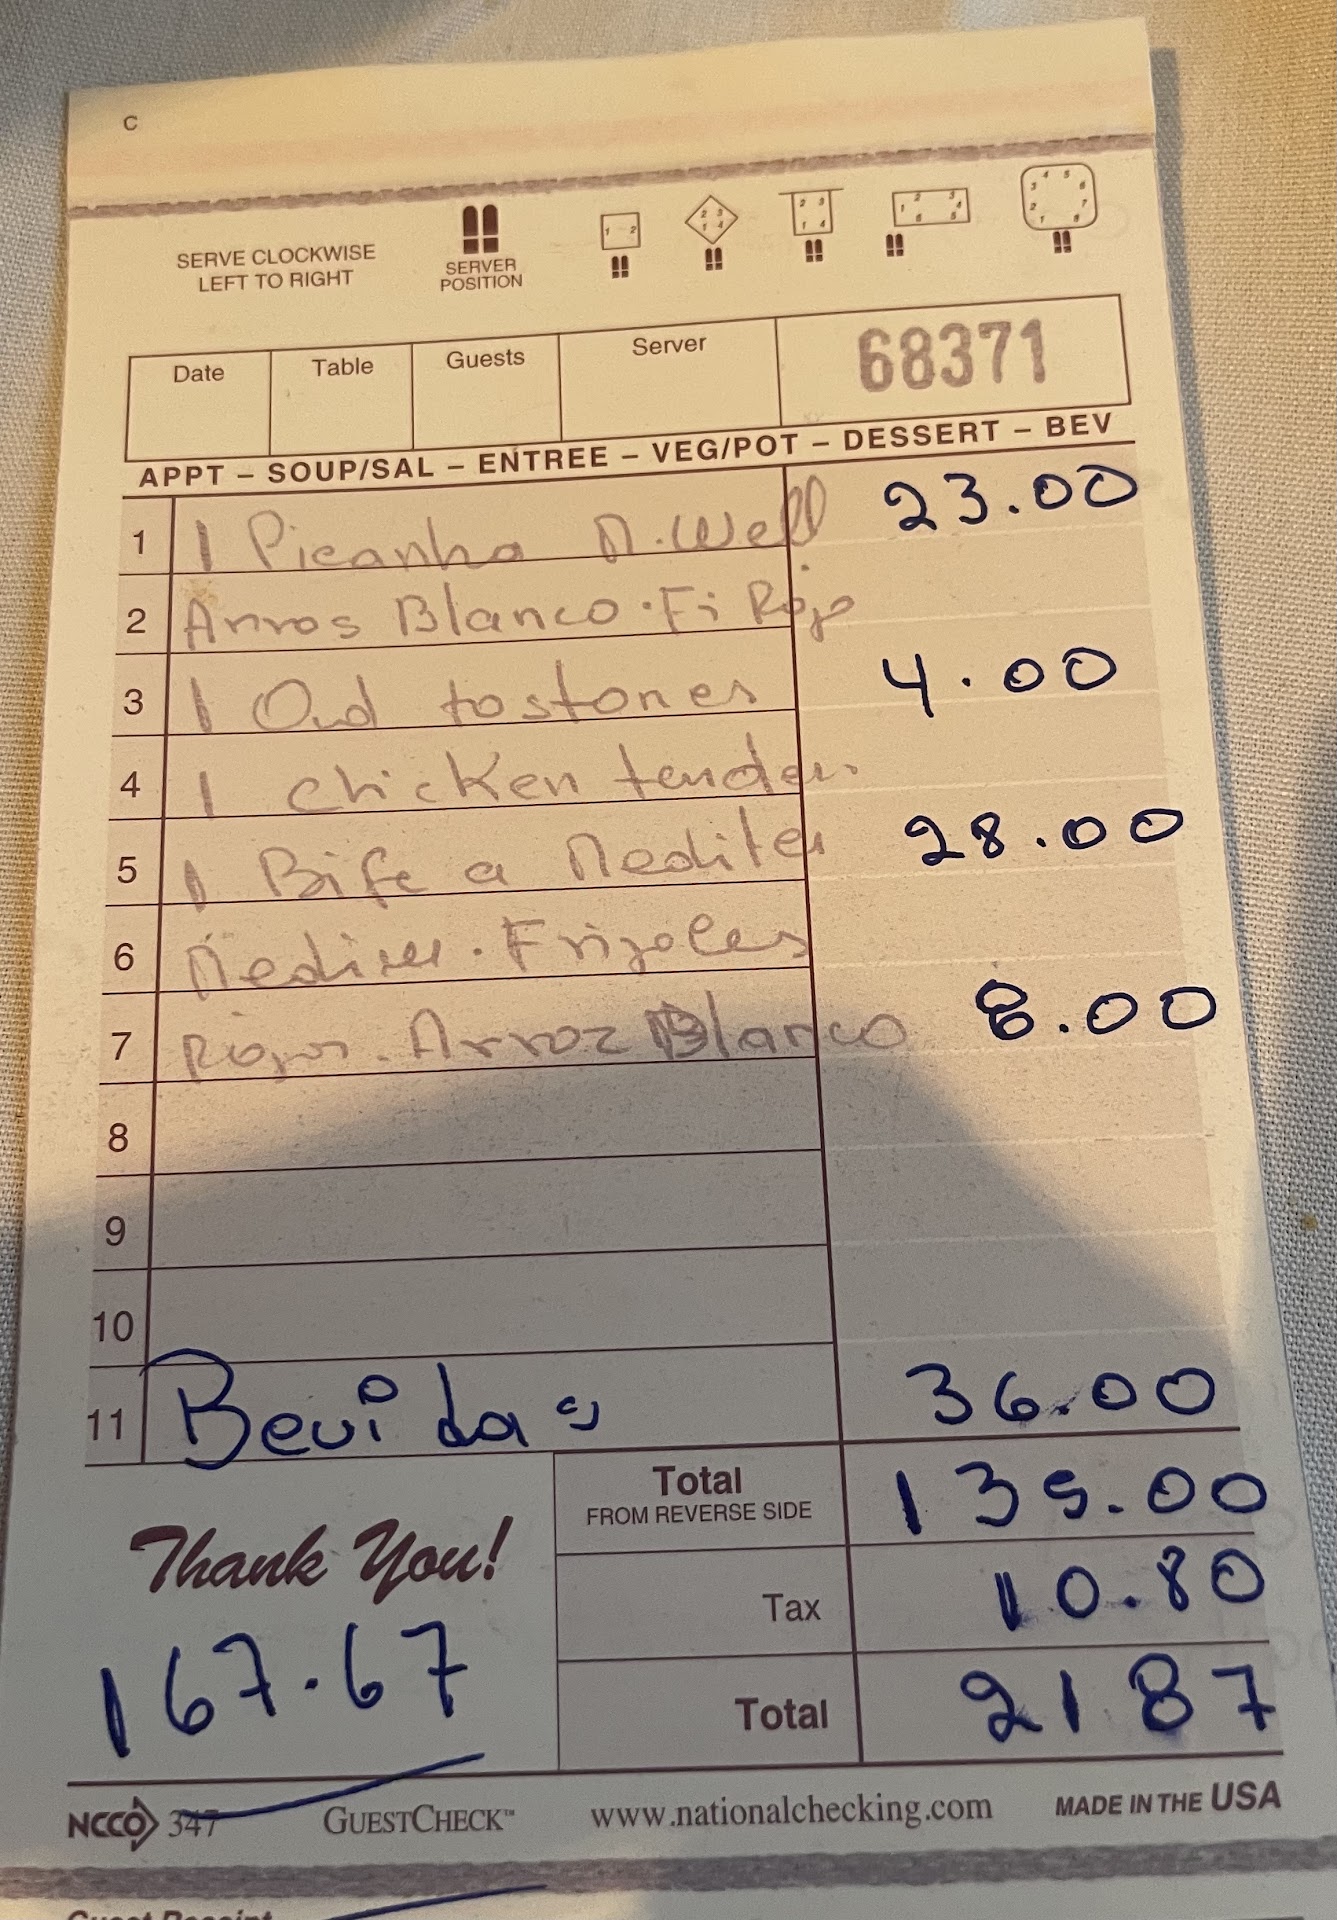 C
SERVE CLOCKWISE
LEFT TO RIGHT
SERVER
POSITION
Date Table Guests Server 68371
APPT – SOUP/SAL – ENTREE – VEG/POT – DESSERT – BEV
1 1 Picanha M.Well 23.00
2 Arros Blanco · Fi Rojo
3 1 Ord tostones 4.00
4 1 chicken tender.
5 1 Bife a Mediter 28.00
6 Frijoles
7 Arroz Blanco 8.00
8
9
10
11 Bevidas 36.00
Total 135.00
FROM REVERSE SIDE
Thank You!
Tax 10.80
167.67
Total 21 87
NCCO 347 GUESTCHECK™ www.nationalchecking.com MADE IN THE USA
Guest Receipt